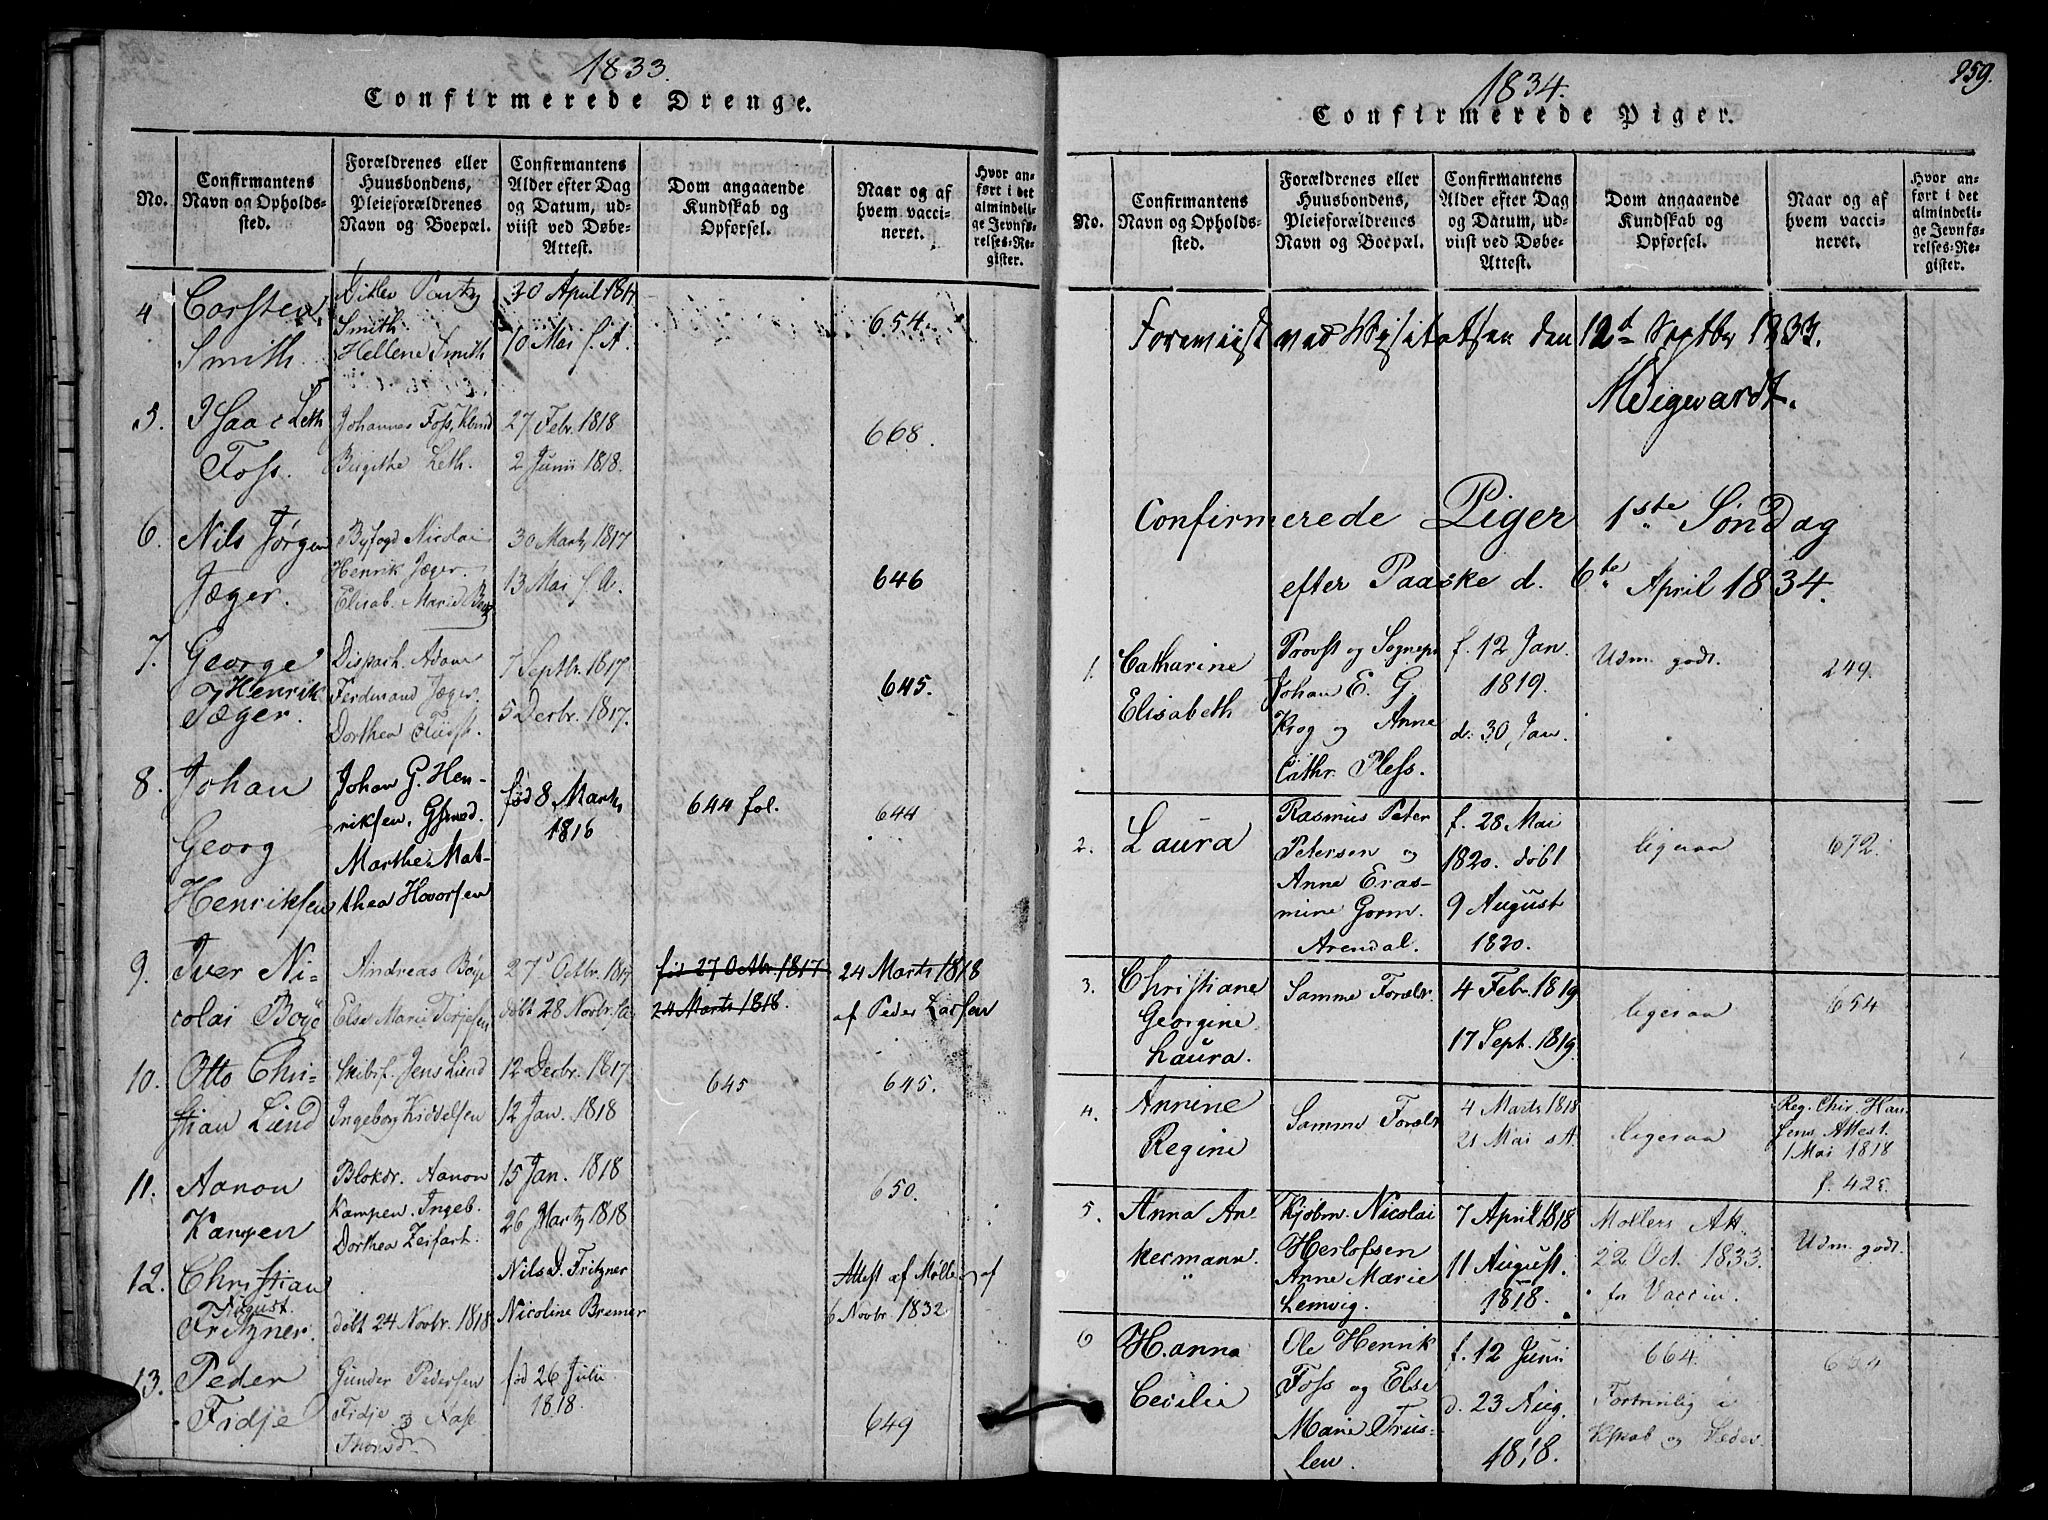 1833.
Confirmerede Drenge.
No.
Confirmantens
Navn og Opholds-
sted.
Forældrenes eller
Huusbondens,
Pleieforældrenes
Navn og Boepæl.
Confirmantens
Alder efter Dag
og Datum, ud-
viist ved Døbe-
Attest.
Dom angaaende
Kundskab og
Opførsel.
Naar og af
hvem vacci-
neret.
Hvor an-
ført i det
almindeli-
ge Jevnfø-
relses-Re-
gister.
4
Carsten
Smith.
Ditlev
Smith
Hellene Smith
20 April 181
10 Mai s. A.
654.
5.
Isaac Leth
Foss.
Johannes Foss,
Birgithe Leth.
27 Febr. 1818
2 Junii 1818.
668.
6.
Nils Jørgen
Jæger.
Byfogd Nicolai
Henrik Jæger.
Elisab. Marie
30 Marts 1817
13 Mai s. A.
646
7.
George
Henrik
Jæger.
Dispach. Adam
Ferdinand Jæger.
Dorthea
7 Septbr. 1817
5 Decbr. 1817.
645.
8.
Johan
Georg
Henriksen
Johan G. Hen-
riksen,
Marthe Mat-
thea Hovorsen
fød 8 Marts
1816
644 fol.
644
9.
Iver Ni-
colai Boye
Andreas Boye
Else Marie Terjesen
27 Octbr. 1817
døbt 28 Novbr. s. a.
fød 27 Octbr. 1817
24 Marts 1818.
24 Marts 1818
af Peder Larsen
10.
Otto Chri-
stian Lund
Skibsf. Jens Lund
Ingeborg Kiddelsen
12 Decbr. 1817
12 Jan. 1818
645
645.
11.
Aanon
Kampen
Blokdr. Aanon
Kampen. Ingeb.
Dorthea Zeifart.
15 Jan. 1818
26 Marts 1818
650.
12.
Christian
August
Fritzner.
døbt 24 Novbr. 1818
Nils D. Fritzner
Nicoline Bremer
Attest af Møller af
6 Novbr. 1832
13.
Peder
Fidje
Gunder Pedersen
Fidje og Aase
fød 26 Julii
1818.
649
1834.
259.
Confirmerede Piger.
No.
Confirmantens
Navn og Opholds-
sted.
Forældrenes eller
Huusbondens,
Pleieforældrenes
Navn og Boepæl.
Confirmantens
Alder efter Dag
og Datum, ud-
viist ved Døbe-
Attest.
Dom angaaende
Kundskab og
Opførsel.
Naar og af
hvem vacci-
neret.
Hvor an-
ført i det
almindeli-
ge Jevnfø-
relses-Re-
gister.
Foreviist ved Visitatsen den 12te Septbr 1833.
Confirmerede Piger 1ste Søndag
efter Paaske d. 6te April 1834.
1.
Catharine
Elisabeth
Provst og Sognepr.
Johan E. G.
Krog og Anne
Cathr. Pless.
f. 12 Jan.
1819.
d. 30 Jan.
Udm. godt.
249.
2.
Laura
Rasmus Peter
Petersen og
Anne Eras-
mine Gorm.
Arendal.
f. 28 Mai
1820. døbt
9 August
1820.
ligesaa
672.
3.
Christiane
Georgine
Laura.
Samme Forældr.
4 Febr. 1819
17 Sept. 1819.
ligesaa
654
4.
Annine
Regine
Samme Forældr.
4 Marts 1818
21 Mai s A.
ligesaa
Reg. Chir. Han-
sens Attest.
1 Mai 1818
f. 425.
5.
Anna An-
kermann.
Kjøbm. Nicolai
Herlofsen
Anne Marie
Lemvig.
7 April 1818
11 August.
1818.
Møllers Att.
22 Oct. 1833.
for Vaccin.
Udm. godt.
6
Hanna
Cecilie
Ole Henrik
Foss og Else
Marie Trus-
len.
f. 12 Junii
d. 23 Aug.
1818.
664.
Fortrinlig i
Kskab og Sæder